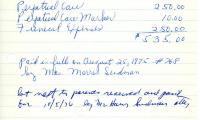 Perpetual Care 250.00
Perpetual Care Marker 10.00
Funeral Expenses 250.00
$535.00
Paid in full on August 25, 1975 #768
by Mrs. Morris Sundman
lot next to parents reserved and paid
for 10/5/36 by Mr.